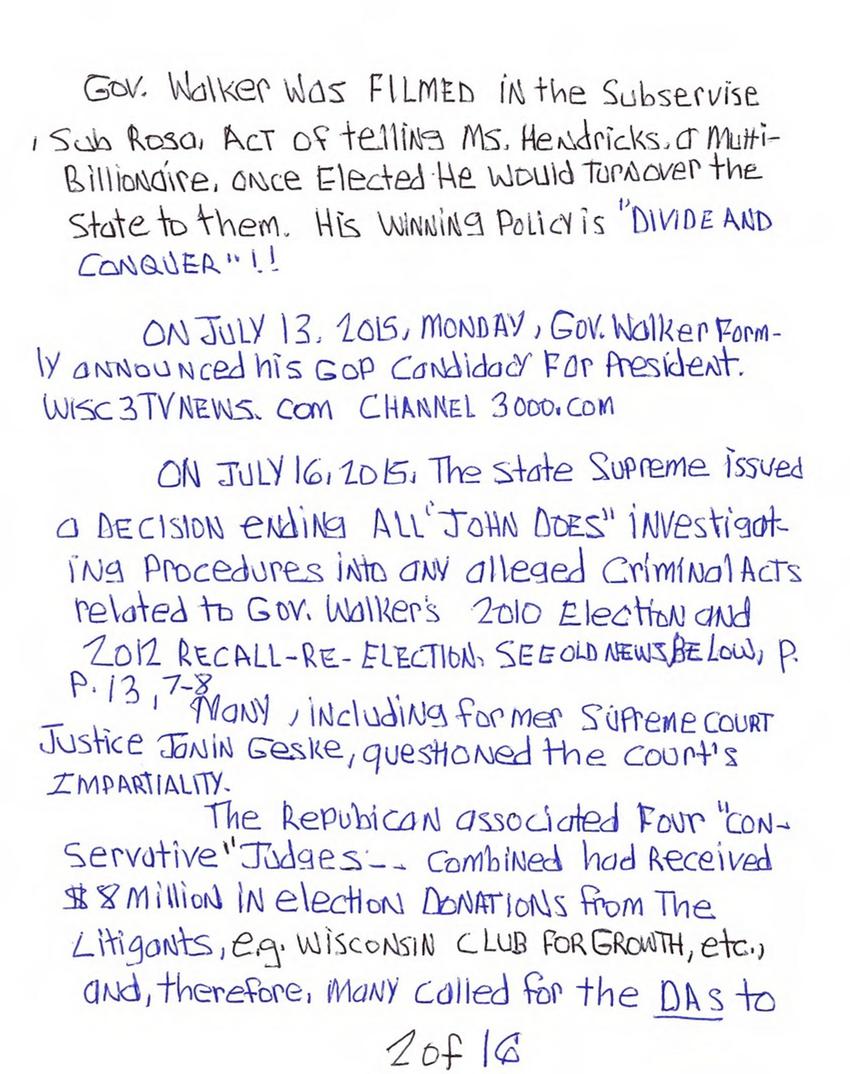 Gov. Walker was FILMED in the Subservise
, Sub Rosa, ACT OF telling Ms. Hendricks, a Multi-
Billionaire, once Elected He Would Turnover the
State to them. His WINNING Policy is "DIVIDE AND
CONQUER"!!
ON JULY 13, 2015, MONDAY, Gov. Walker Form-
ly announced his GOP Candidacy For President.
WISC3TVNEWS.com CHANNEL 3000.com
ON JULY 16, 2015, The State Supreme issued
a DECISION ending ALL "JOHN DOES" investigat-
ing Procedures into any alleged Criminal Acts
related to Gov. Walker's 2010 Election and
2012 RECALL-RE-ELECTION. SEE OLD NEWS, BELOW, P.
P. 13, 7-8
Many, including former Supreme COURT
Justice Janin Geske, questioned the court's
IMPARTIALITY.
The Repubican associated Four "CON-
servative" Judges -- combined had Received
$8 Million in election DONATIONS from The
Litigants, e.g. WISCONSIN CLUB FOR GROWTH, etc.,
and, therefore, many called for the DAs to
2 of 16